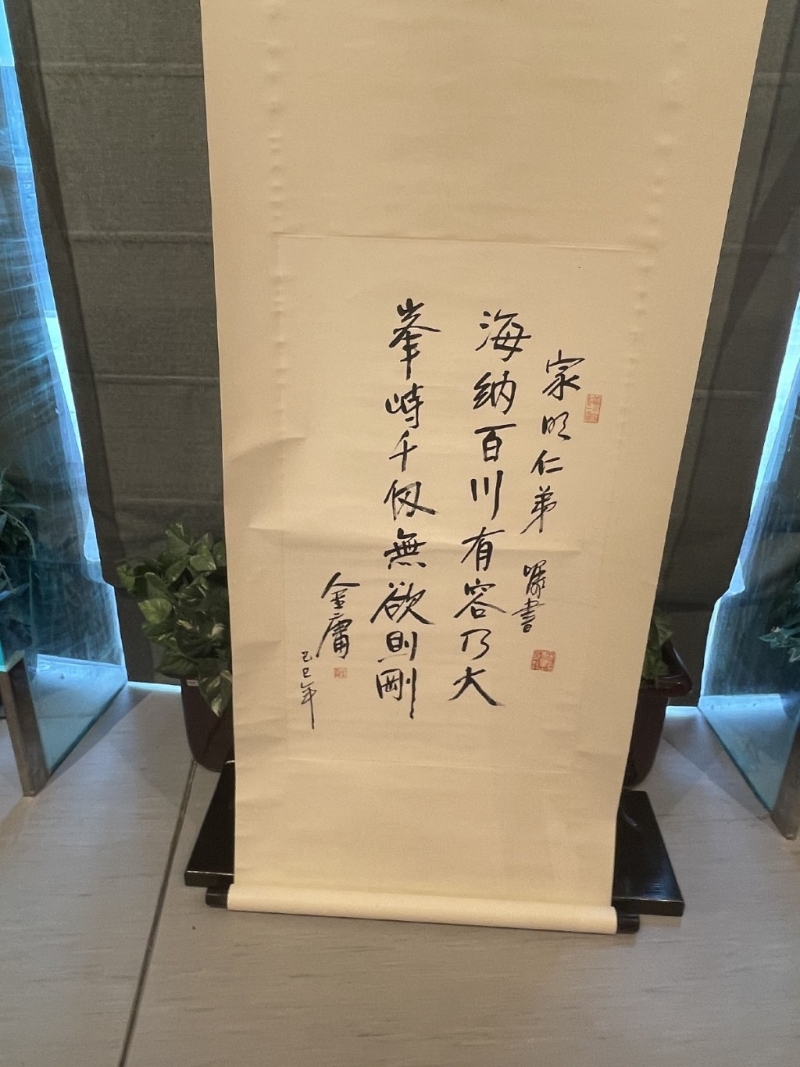 家明仁弟 囑書
海納百川有容乃大
峯峙千仞無欲則剛
金庸
己巳年